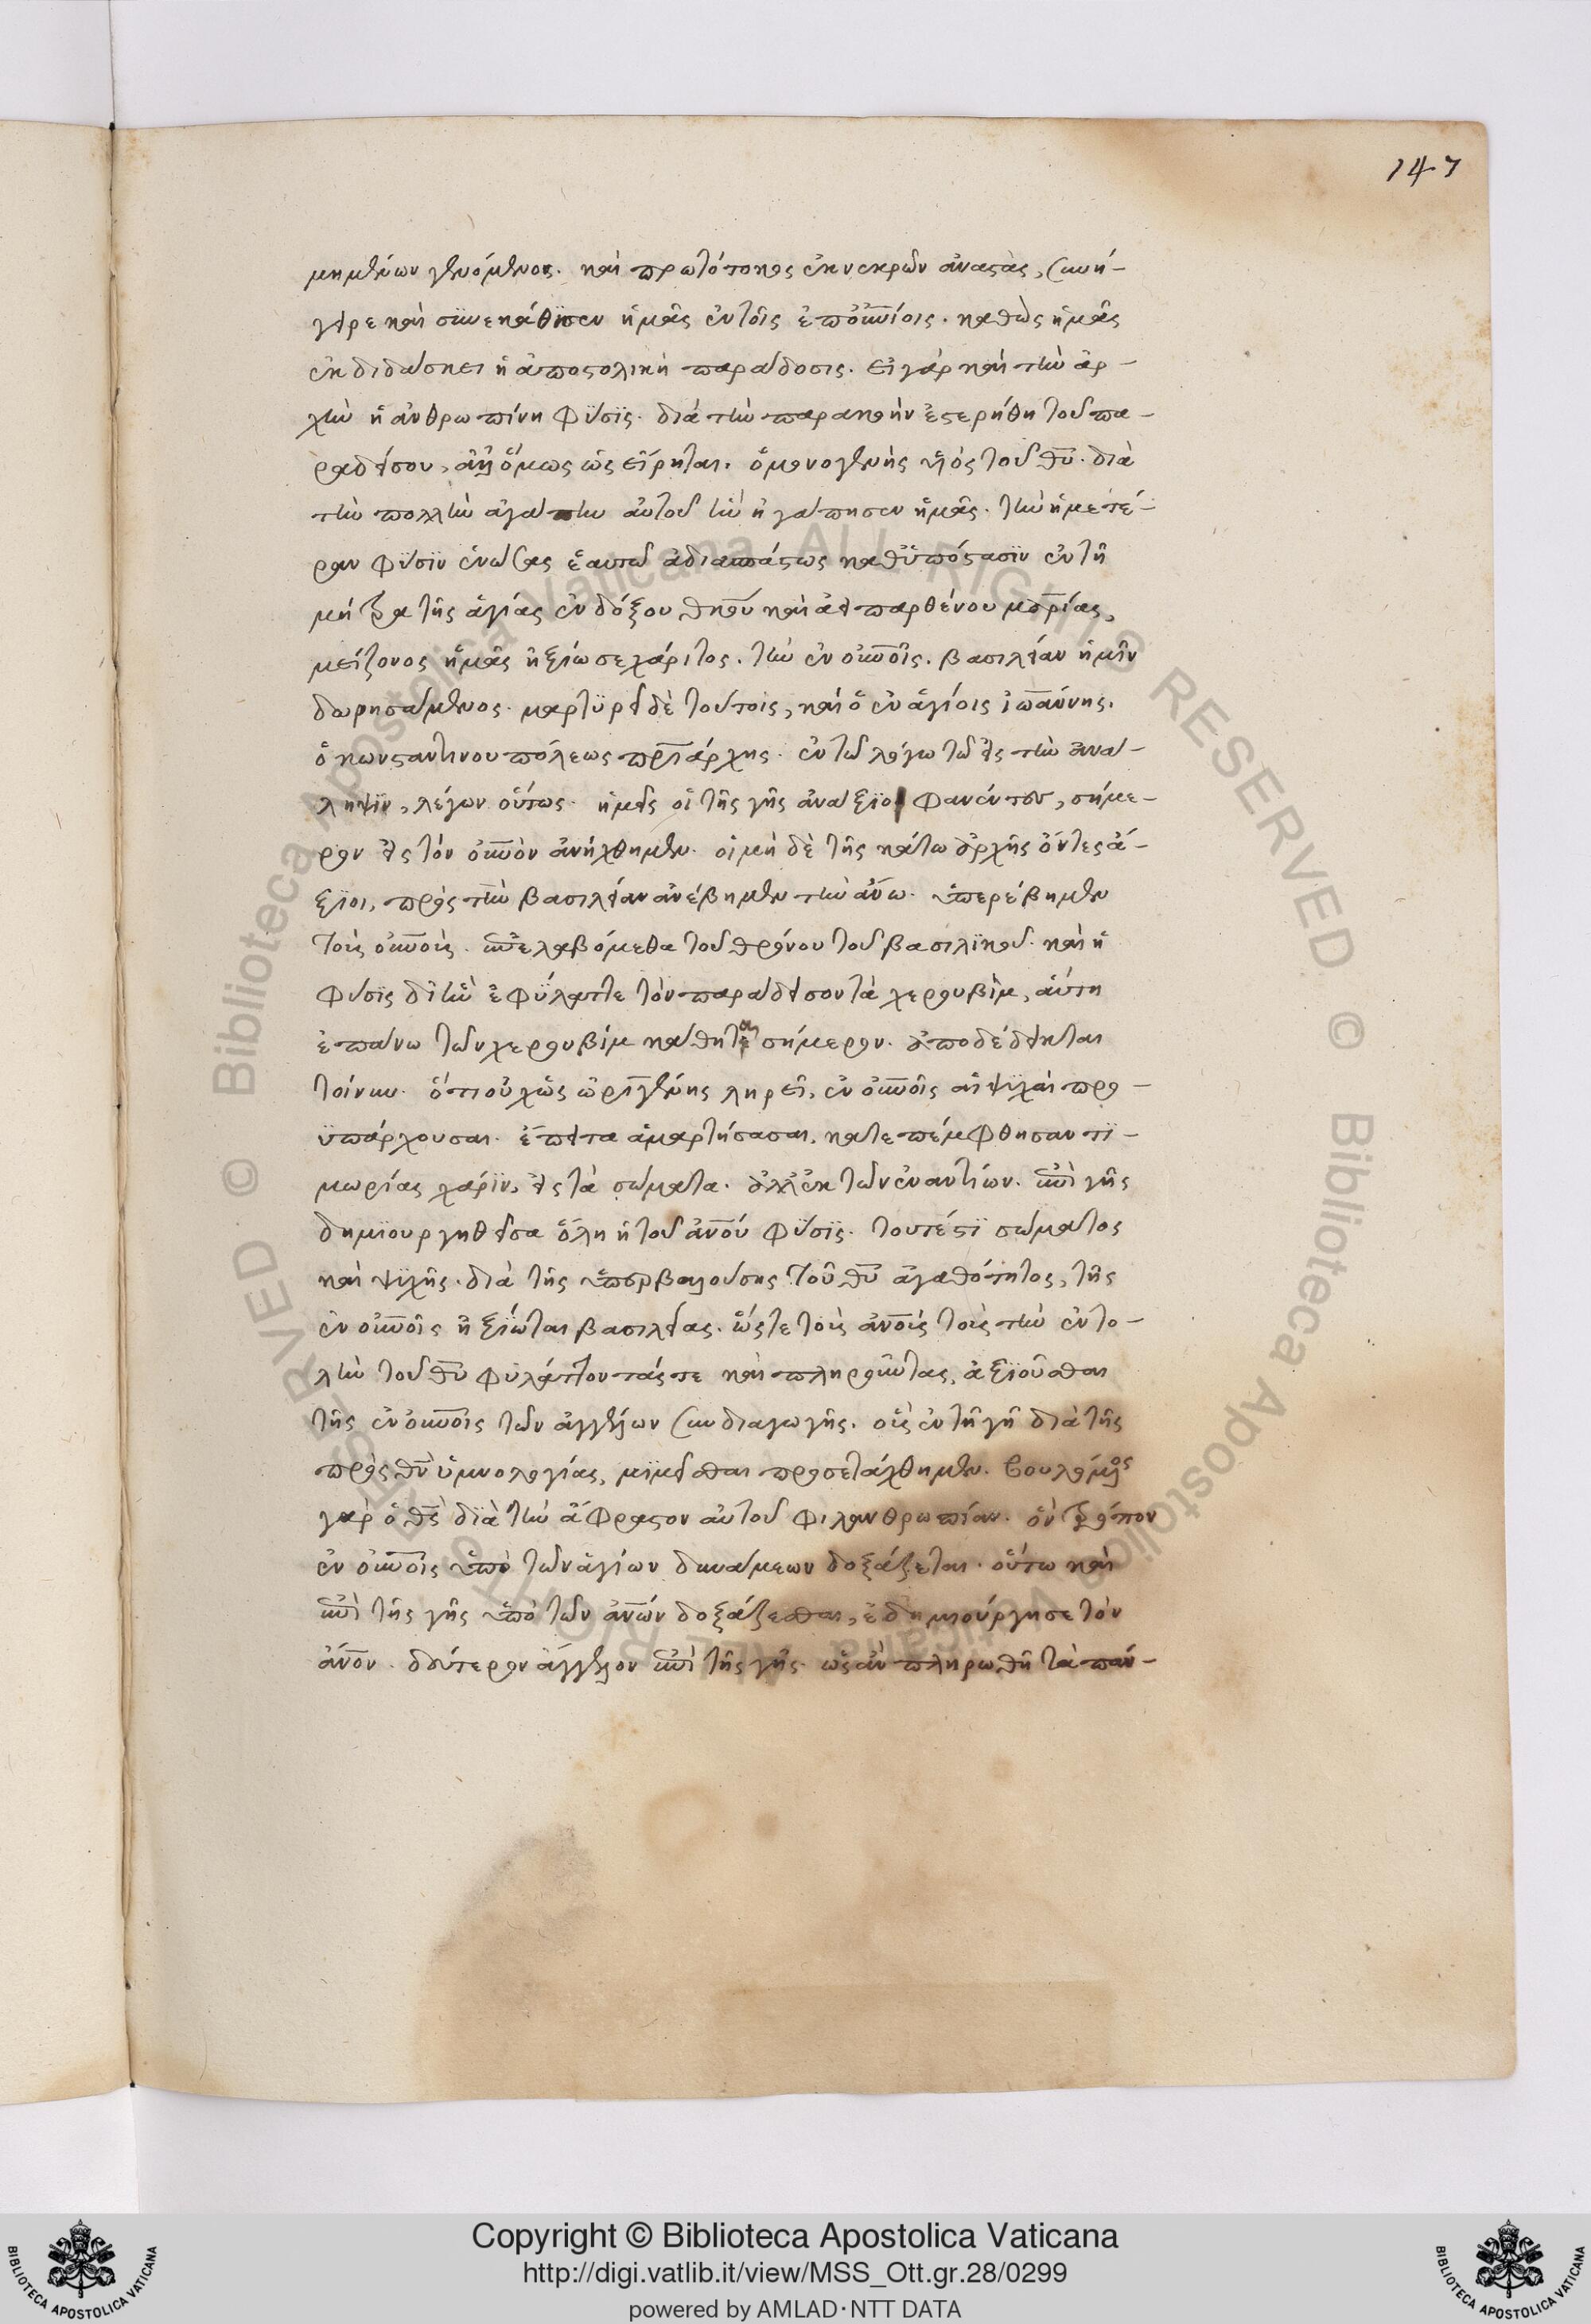 147
μημένων γενόμενος. καὶ πρωτότοκος ἐκ νεκρῶν ἀναστὰς, συνή-
γειρε καὶ συνεκάθισεν ἡμᾶς ἐν τοῖς ἐπουνίοις. καθὼς ἡμᾶς
ἐκδιδάσκει ἡ ἀποστολικὴ παράδοσις. εἰ γὰρ καὶ τὴν ἀρ-
χὴν ἡ ἀνθρωπίνη φύσϊς. διὰ τὴν παρακοὴν ἐστερήθη τοῦ πα-
ραδείσου, ἀλλ' ὅμως ὡς εἴρηται. ὁ μονογενὴς υἱὸς τοῦ θῦ. διὰ
τὴν πολλὴν ἀγάπην αὐτοῦ ἣν ἠγάπησεν ἡμᾶς. τὴν ἡμετέ-
ραν φύσϊν ἑνώσας ἑαυτῶ ἀδιασπάστως καθ' ὑπόστασϊν ἐν τῆ
μήτρα τῆς ἁγίας ἐνδόξου θκοῦ καὶ ἀειπαρθένου μαρίας,
μείζονος ἡμᾶς ἠξίωσε χάριτος. τὴν ἐν οὐνοῖς. βασιλείαν ἡμῖν
δωρησάμενος. μαρτϋρεῖ δὲ τούτοις, καὶ ὁ ἐν ἁγίοις ἰωάννης.
ὁ κωνσταντινουπόλεως πριάρχης. ἐν τῶ λόγω τῶ εἰς τὴν ἀνά-
ληψϊν, λέγων οὕτως. ἡμεῖς οἱ τῆς γῆς ἀνάξϊοι φανέντες, σήμε-
ρον εἰς τὸν οὐνὸν ἀνήχθημεν. οἱ μὴ δὲ τῆς κάτω ἀρχῆς ὄντες ἄ-
ξϊοι, πρὸς τὴν βασιλείαν ἀνέβημεν τὴν ἄνω. ὑπερέβημεν
τοὺς οὐνοὺς. ἐπελαβόμεθα τοῦ θρόνου τοῦ βασιλϊκοῦ. καὶ ἡ
φύσϊς δι' ἣν ἐφύλαττε τὸν παράδεισον τὰ χερουβὶμ, αὕτη
ἐπάνω τῶν χερουβὶμ κάθηται σήμερον. ἀποδέδεικται
τοίνυν. ὅτι οὐχ ὡς ὠριγένης ληρεῖ, ἐν οὐνοῖς αἱ ψϋχαὶ προ-
ϋπάρχουσαι. ἔπειτα ἁμαρτήσασαι, κατεπέμφθησαν τϊ-
μωρίας χάρϊν, εἰς τὰ σώματα. ἀλλ' ἐκ τῶν ἐναντίων. ἐπὶ γῆς
δημϊουργηθεῖσα ὅλη ἡ τοῦ ἀνοῦ φύσϊς. τουτέστϊ σώματος
καὶ ψϋχῆς. διὰ τῆς ὑπερβαλούσης τοῦ θῦ ἀγαθότητος, τῆς
ἐν οὐνοῖς ἠξίωται βασιλείας. ὥστε τοὺς ἀνοὺς τοὺς τὴν ἐντο-
λὴν τοῦ θῦ φϋλάττοντάς τε καὶ πληροῦντας, ἀξϊοῦσθαι
τῆς ἐν οὐνοῖς τῶν ἀγγέλων συνδιαγωγῆς. οὓς ἐν τῆ γῆ διὰ τῆς
πρὸς θν ὑμνολογίας, μϊμεῖσθαι προσετάχθημεν. βουλόμενος
γὰρ ὁ θς διὰ τὴν ἄφραστον αὐτοῦ φιλανθρωπίαν. ὃν τρόπον
ἐν οὐνοῖς ὑπὸ τῶν ἁγίων δυνάμεων δοξάζεται. οὕτω καὶ
ἐπὶ τῆς γῆς ὑπὸ τῶν ἀνῶν δοξάζεσθαι, ἐδημιούργησε τὸν
ἄνον. δεύτερον ἄγγελον ἐπὶ τῆς γῆς. ὡς ἂν πληρωθῆ τὰ πάν-
© Biblioteca Apostolica Vaticana ALL RIGHTS RESERVED © Biblioteca Apostolica Vaticana ALL RIGHTS RESERVED
BIBLIOTECA APOSTOLICA VATICANA
Copyright © Biblioteca Apostolica Vaticana
http://digi.vatlib.it/view/MSS_Ott.gr.28/0299
powered by AMLAD·NTT DATA
BIBLIOTECA APOSTOLICA VATICANA